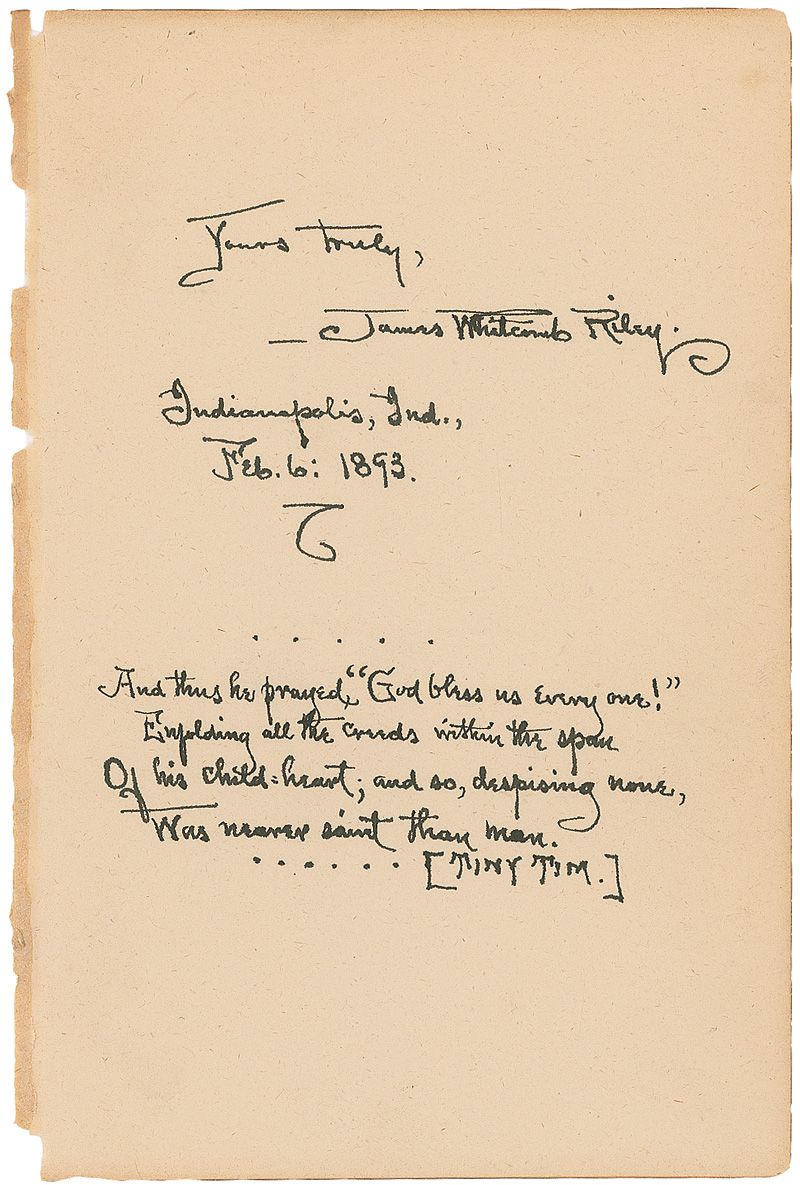 Yours truly,
_ James Whitcomb Riley.
Indianapolis, Ind.,
Feb. 6: 1893.
. . . . .
And thus he prayed, "God bless us every one!"
Enfolding all the creeds within the span
Of his child=heart; and so, despising none,
Was nearer saint than man.
. . . . . . [TINY TIM.]